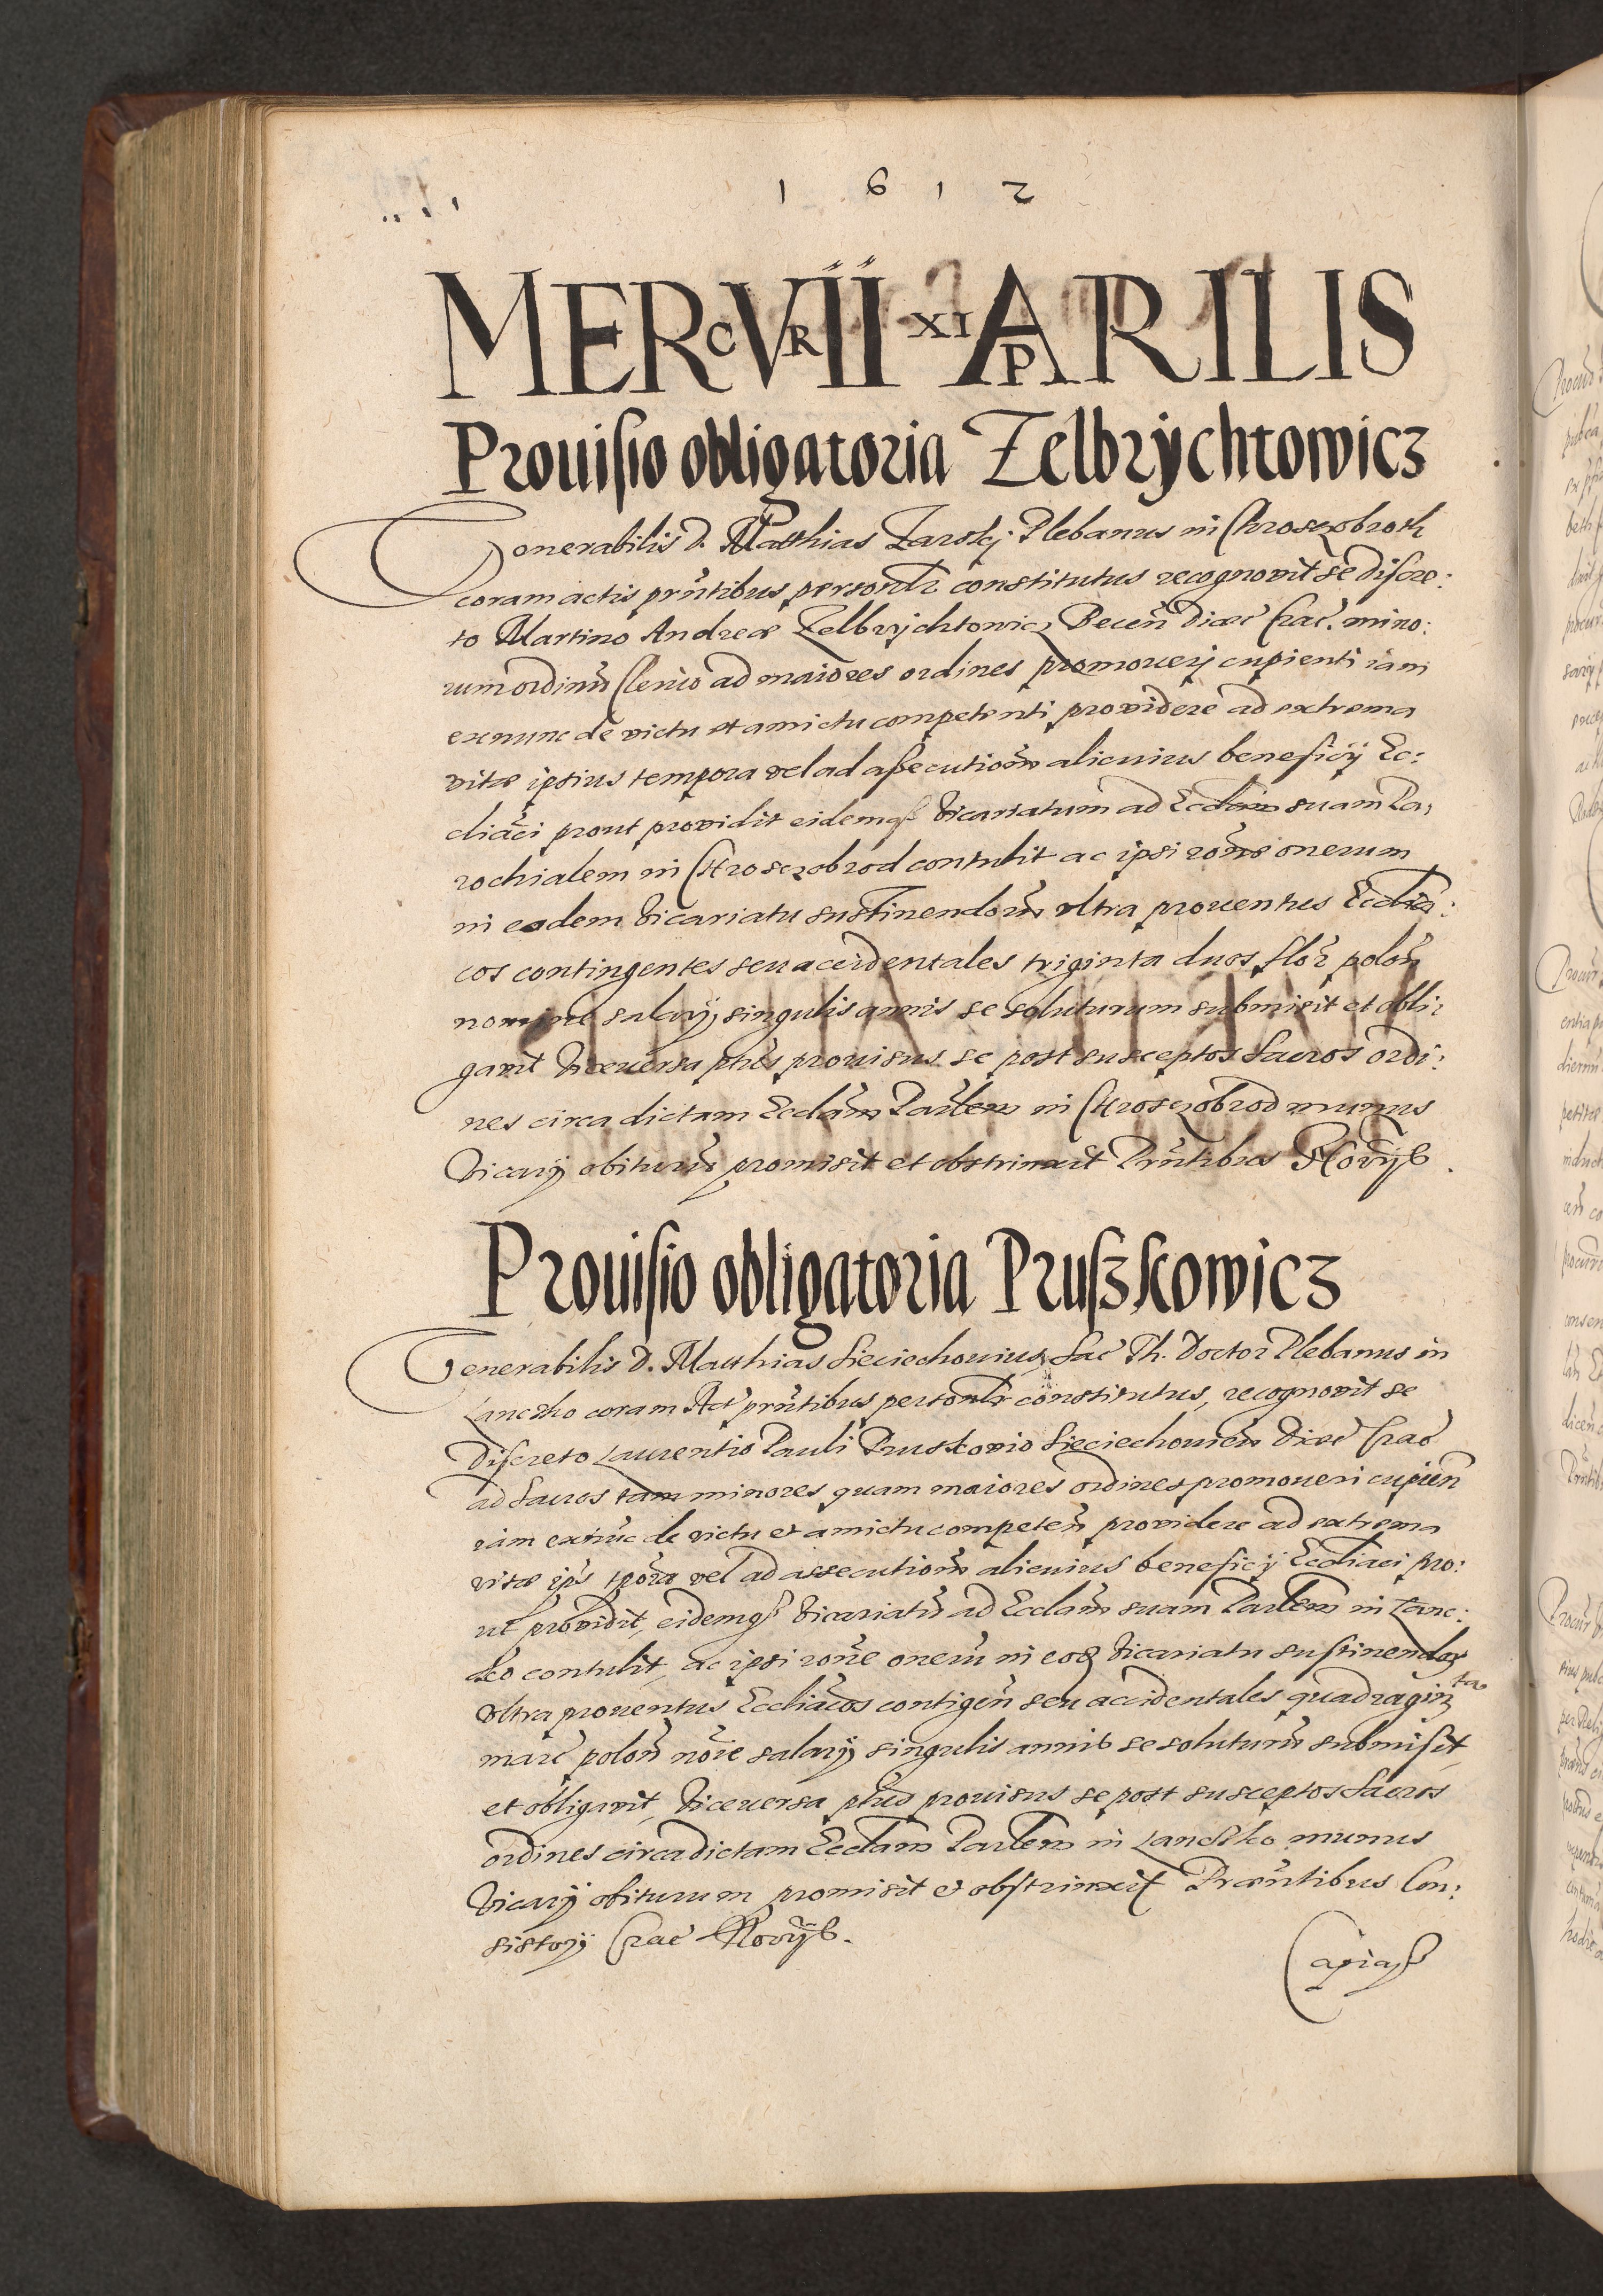 1 6 1 2
MERCVRII XI APRILIS
Prouisio obligatoria Zelbrychtowicz
Venerabilis D. Matthias Zarskj Plebanus in Chroszobroth
coram actis prñtibus personlr constitutus recognovit se discre:
to Martino Andreæ Zelbrychtowicz Becen̄ diæc Crac. mino:
rum ordinū Clerico ad maiores ordines promoverj cupienti iam
exnunc de victu et amictu competenti providere ad extrema
vitæ ipsius tempora vel ad assecutionem alicuius beneficij Ec:
cliāci prout providit eidemqз vicariatum ad Ecclām suam Pa:
rochialem in Chroszobrod contulit ac ipsi rōne onerum
in eodem vicariatu sustinendorū vltra prouentus Ecclia:
cos contingentes seu accidentales triginta duos flor polon̄
nomine salarij singulis annis se soluturum submisit et obli:
gavit Viceuersa phūs prouisus se post susceptos Sacros ordi:
nes circa dictam Ecclām Parlem in Chroszobrod munus
Vicarij obiturū promisit et obstrinxit Prñtibus
Prouisio obligatoria Pruszkowicz
Venerabilis D. Matthias Sieciechouius Sac Th. Doctor Plebanus in
Lanczko coram Act prñtibus personlr constitutus, recognovit se
discreto Laurentio Pauli Pruskovio Sieciechouien̄ diæc Crac
ad Sacros tam minores quam maiores ordines promoueri cupien̄
iam exnūc de victu et amictu competen̄ providere ad extrema
vitæ ipš tpōra vel ad assecutionem alicuius beneficij Eccliaci pro:
ut providit, eidemqз vicariatū ad Ecclām suam Parlem in Lanc:
sko contulit, ac ipsi rōne onerū in eod vicariatu sustinendor
vltra prouentus Eccliācos contigen̄ seu accidentales quadraginta
marc polon̄ nōie salarij singulis annis se soluturū submisit,
et obligavit, Viceuersa phūs prouisus se post susceptos Sacros
ordines circa dictam Ecclām Parlem in Lancsko munus
Vicarij obiturum promisit et obstrinxit Præntibus Con:
sistorij Crac